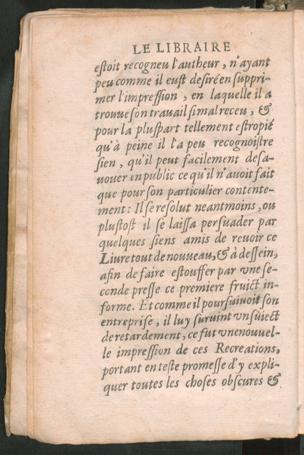 LE LIBRAIRE
estoit recogneu l'autheur, n'ayant
peu comme il eust desiré en suppri-
mer l'impression, en laquelle il a
trouue son trauail si mal receu, &
pour la pluspart tellement estropié
qu'à peine il l'a peu recognoistre
sien, qu'il peut facilement desa-
uouer en public ce qu'il n'auoit fait
que pour son particulier contente-
ment: Il se resolut neantmoins, ou
plustost il se laissa persuader par
quelques siens amis de reuoir ce
Liure tout de nouueau, & à dessein,
afin de faire estouffer par vne se-
conde presse ce premiere fruict in-
forme. Et comme il poursuiuoit son
entreprise, il luy suruint vn suiect
de retardement, ce fut vne nouuel-
le impression de ces Recreations,
portant en teste promesse d'y expli-
quer toutes les choses obscures &